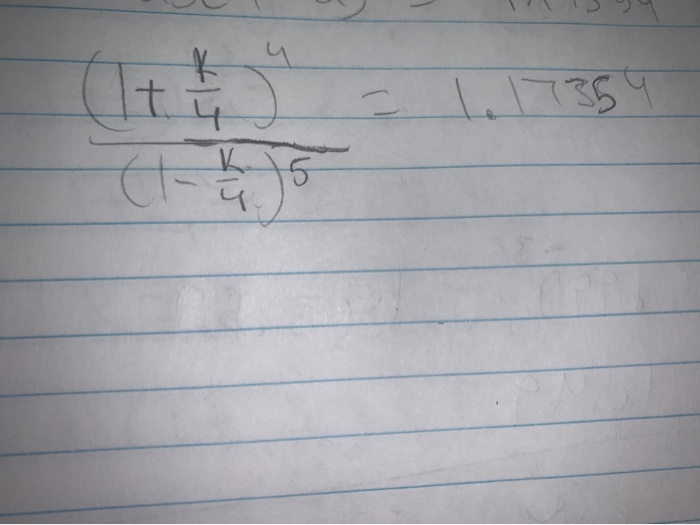 (1 + k/4)^4 / (1 - k/4)^5 = 1.17354